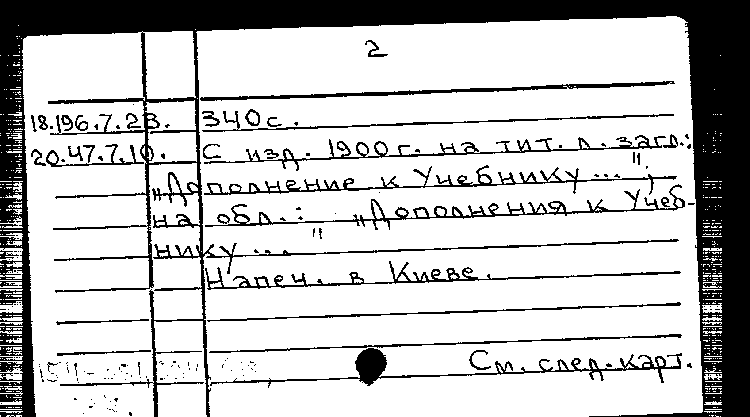 2
18.196.7.23. 340 с.
20.47.7.10. С изд. 1900 г. на тит. л. загл.:
„Дополнение к Учебнику ...";
на обл.: „Дополнения к Учеб-
нику ..."
Напеч. в Киеве.
См. след. карт.